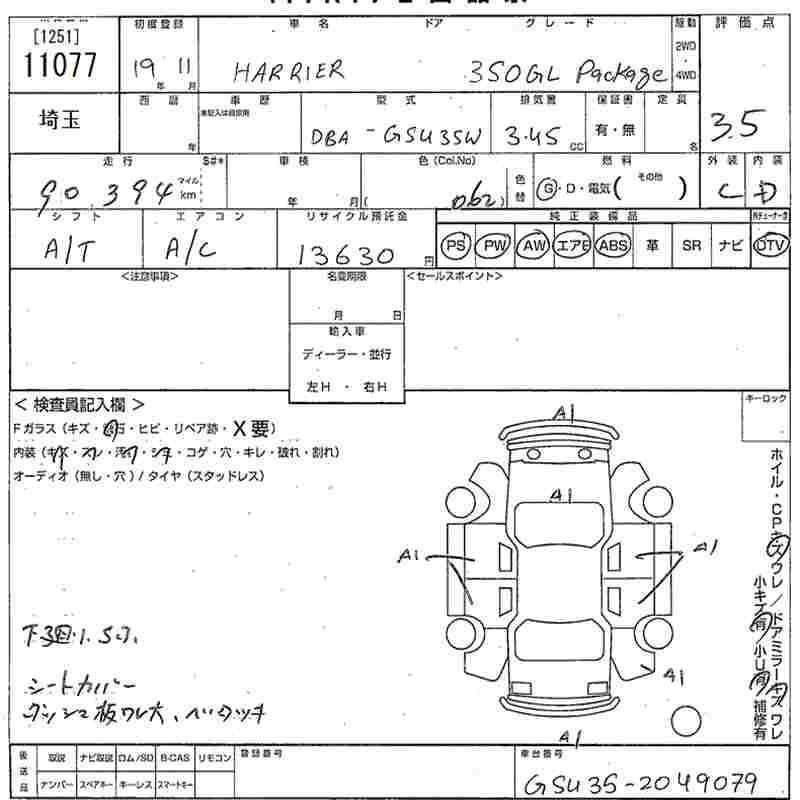 [1251]
11077
埼玉
初度登録
19 年 11 月
車名 ドア グレード
HARRIER 350GL Package
駆動
2WD
4WD
評価点
3.5
西暦
年
車歴
未記入は自家用
型式
DBA-GSU35W
排気量
3.45 cc
保証書
有・無
定員
名
走行 S#*
90,394 マイル km
車検
年 月(
色(Col.No)
062)
色替
燃料
G・D・電気( その他 )
外装
C
内装
D
シフト
A/T
エアコン
A/C
リサイクル預託金
13630 円
純正装備品
PS PW AW エアB ABS 革 SR ナビ DTV
<注意事項>
名変期限
月 日
輸入車
ディーラー・並行
左H ・ 右H
<セールスポイント>
<検査員記入欄>
Fガラス(キズ・飛石・ヒビ・リペア跡・X要)
内装(キズ・スレ・汚れ・シミ・コゲ・穴・キレ・破れ・割れ)
オーディオ(無し・穴)/タイヤ(スタッドレス)
キーロック
ホイル・CPキズワレ/ドアミラーキズワレ
小キズ有 小U有 補修有
A1
A1
A1
A1
A1
A1
下3回り.Sク.
シートカバー
ダッシュ板ワレ大、ペンタッチ
後送品
取説 ナビ取説 ロム/SD B-CAS リモコン
ナンバー スペアキー キーレス スマートキー
登録番号
車台番号
GSU35-2049079